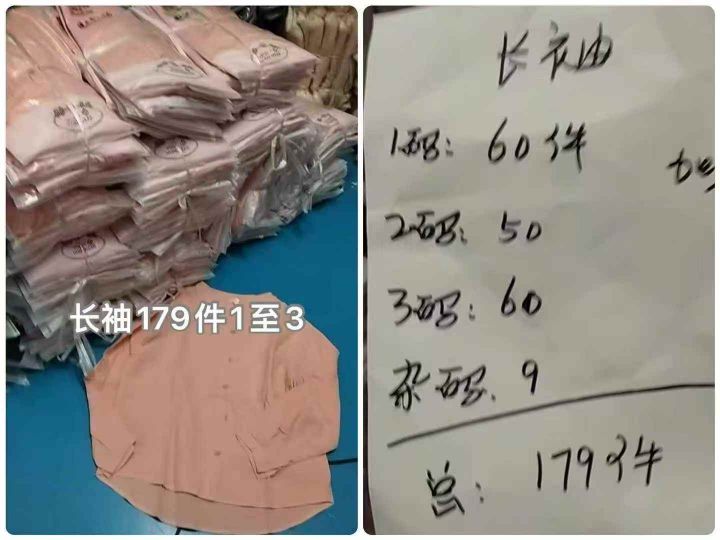 长袖179件1至3
长衣油
1码: 60件
2码: 50
3码: 60
杂码. 9
总: 179件